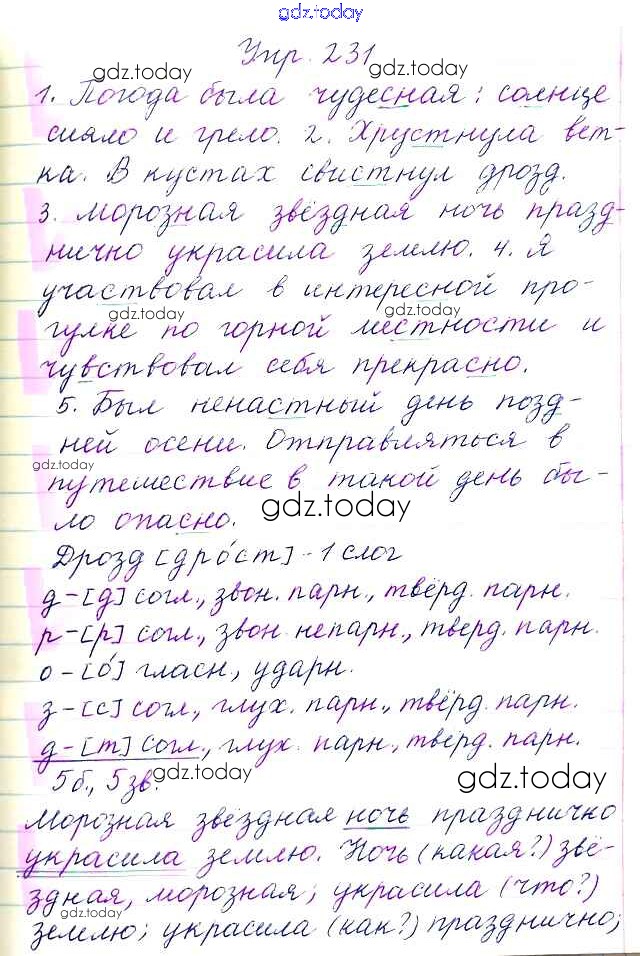 gdz.today
Упр. 231
gdz.today
gdz.today
1. Погода была чудесная: солнце
сияло и грело. 2. Хрустнула вет-
ка. В кустах свистнул дрозд.
gdz.today
gdz.today
3. Морозная звёздная ночь празд-
нично украсила землю. 4. Я
участвовал в интересной про-
gdz.today
gdz.today
гулке по горной местности и
чувствовал себя прекрасно.
5. Был ненастный день позд-
ней осени. Отправляться в
gdz.today
путешествие в такой день бы-
ло опасно.
gdz.today
Дрозд [дро́ст] - 1 слог
д-[д] согл., звон. парн., твёрд. парн.
р-[р] согл., звон непарн., тверд. парн.
о-[о́] гласн., ударн.
з-[с] согл., глух. парн., твёрд. парн.
д-[т] согл., глух. парн., тверд. парн.
5б., 5 зв.
gdz.today
gdz.today
Морозная звёздная ночь празднично
украсила землю. Ночь (какая?) звё-
здная, морозная; украсила (что?)
gdz.today
землю; украсила (как?) празднично;